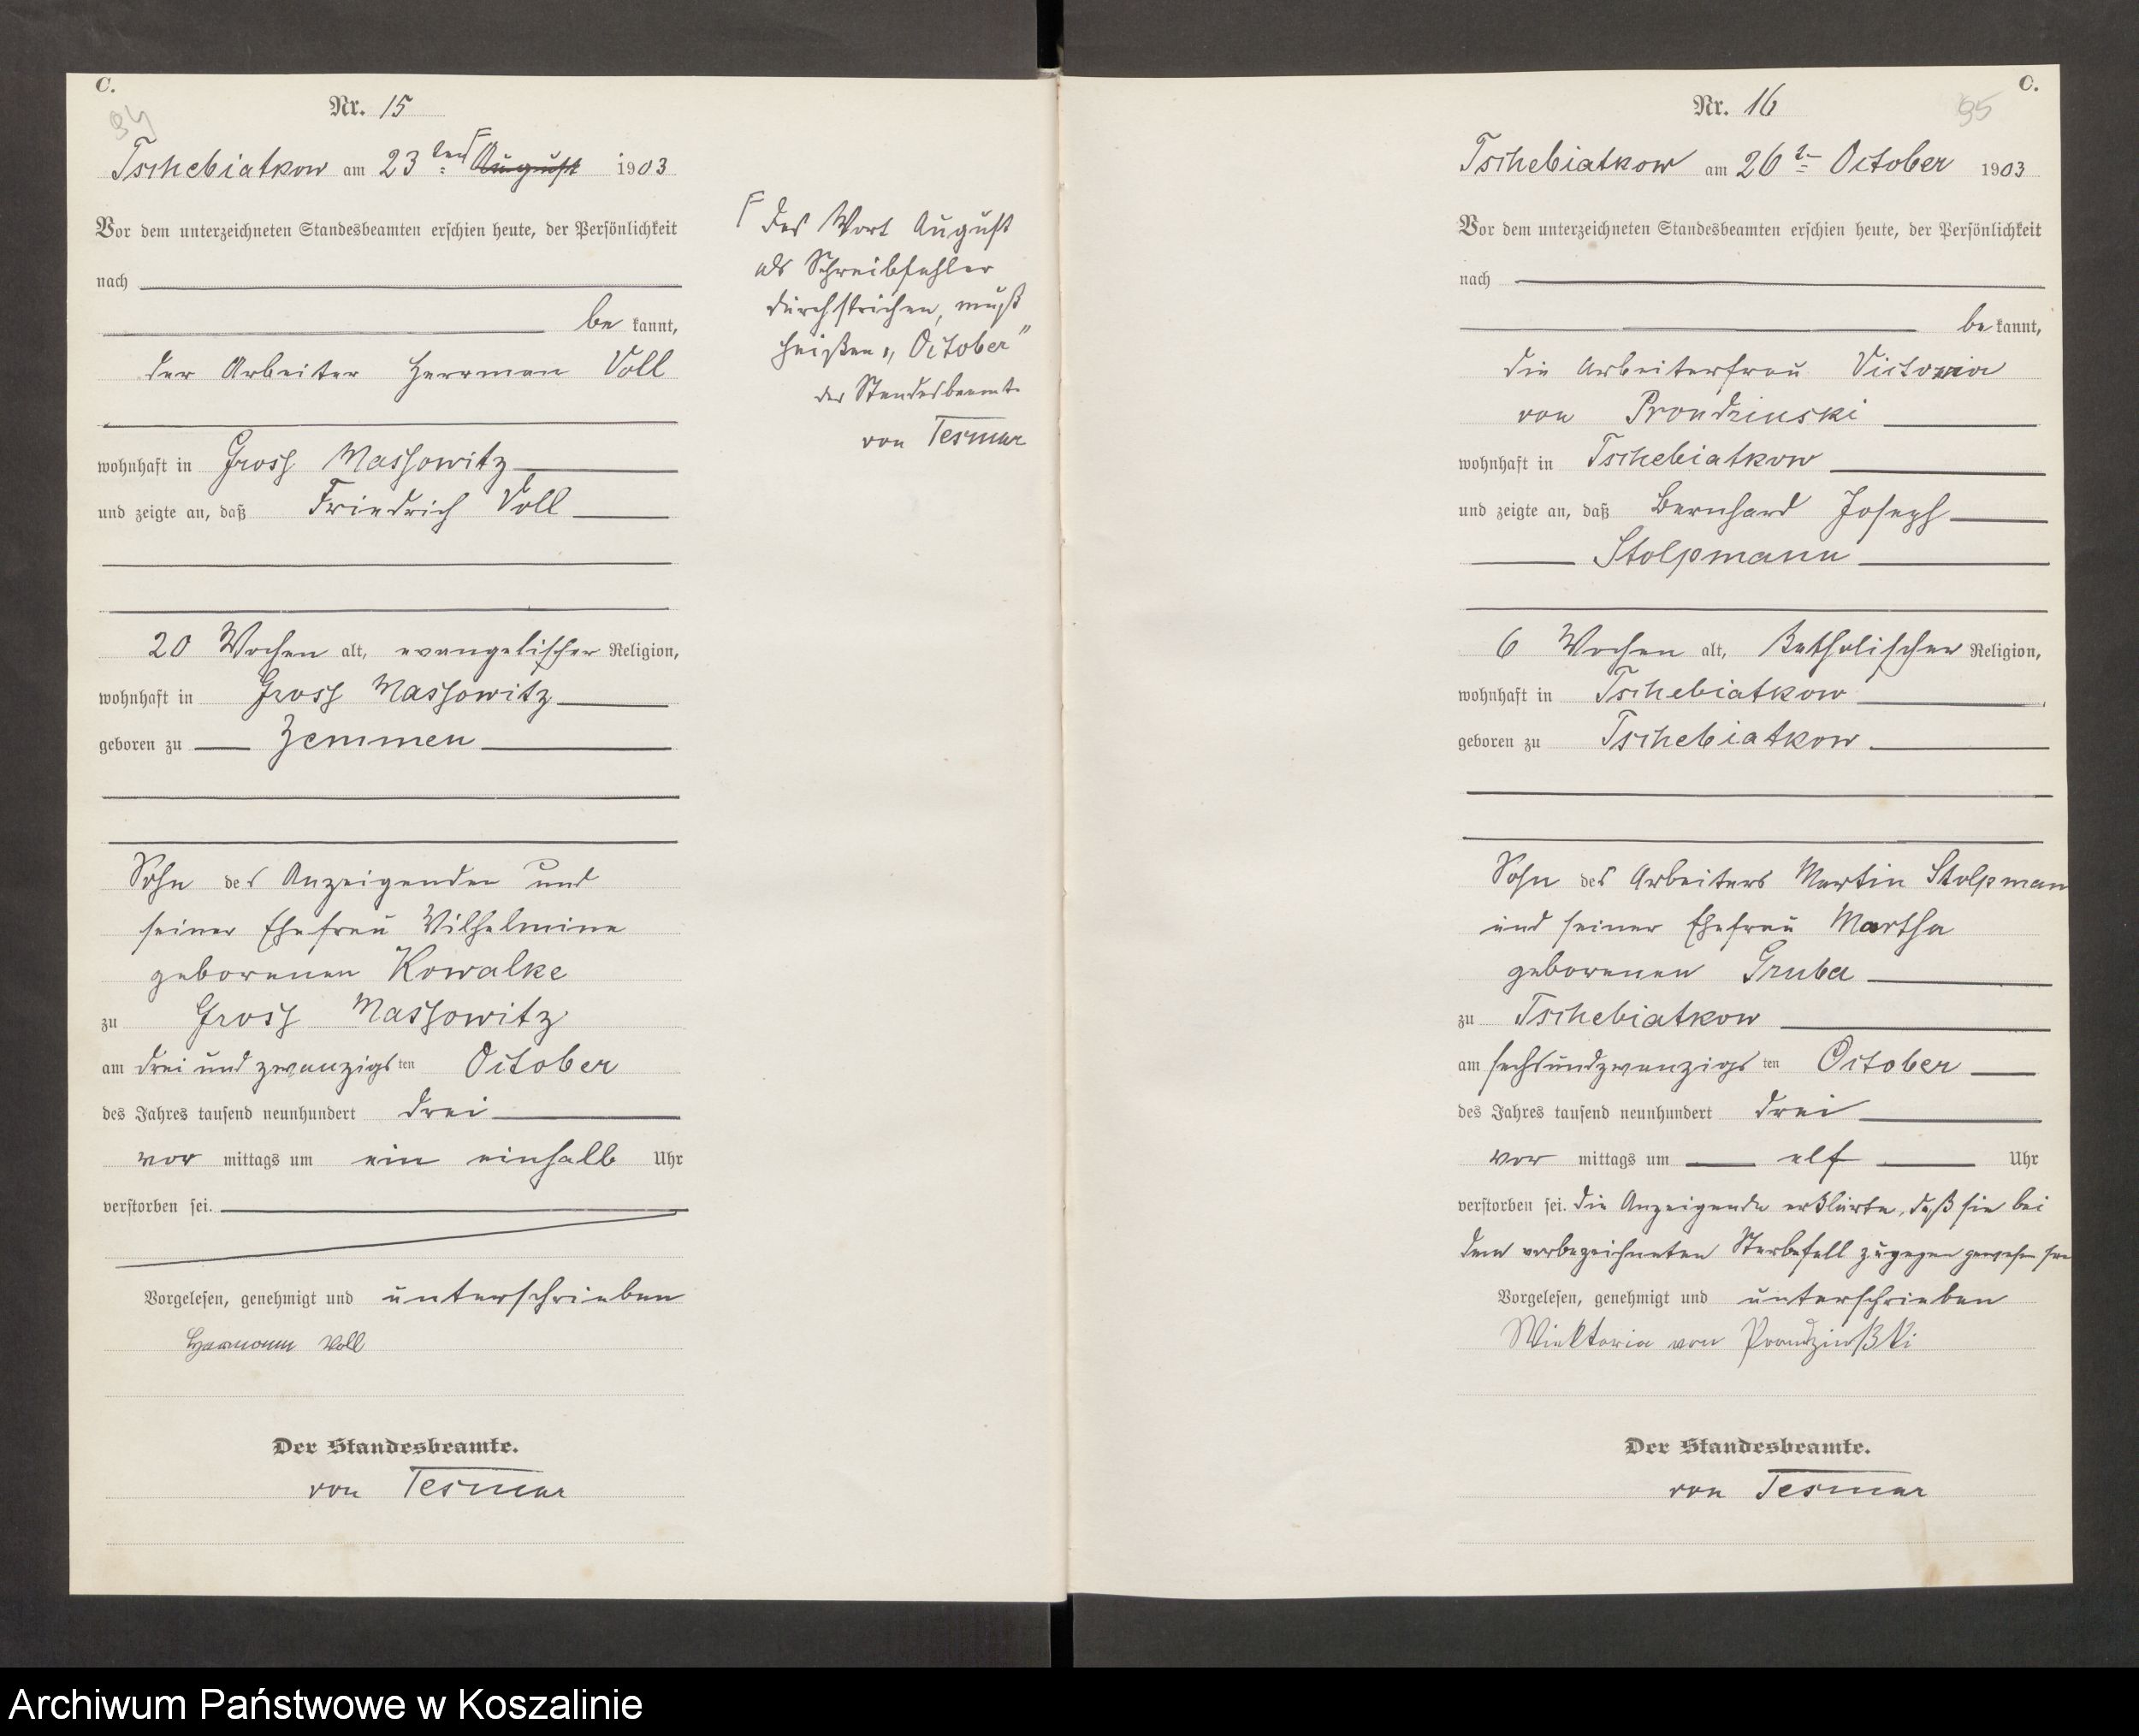 C.
94
Nr. 15
Tschebiatkow am 23ten ⌈ August 1903
Vor dem unterzeichneten Standesbeamten erschien heute, der Persönlichkeit
nach
be kannt,
der Arbeiter Herrman Voll
wohnhaft in Gross Massowitz
und zeigte an, daß Friedrich Voll
20 Wochen alt, evangelischer Religion,
wohnhaft in Gross Massowitz
geboren zu Zemmen
Sohn des Anzeigenden und
seiner Ehefrau Wilhelmine
geborenen Kowalke
zu Gross Massowitz
am drei und zwanzigsten October
des Jahres tausend neunhundert drei
vor mittags um ein einhalb Uhr
verstorben sei.
Vorgelesen, genehmigt und unterschrieben
Hermann Voll
Der Standesbeamte.
von Tesmar
⌈ Das Wort August
als Schreibfehler
durchstrichen, muß
heißen „October"
der Standesbeamte
von Tesmar
C.
95
Nr. 16
Tschebiatkow am 26t October 1903
Vor dem unterzeichneten Standesbeamten erschien heute, der Persönlichkeit
nach
be kannt,
die Arbeiterfrau Victoria
von Prondzinski
wohnhaft in Tschebiatkow
und zeigte an, daß Bernhard Joseph
Stolpmann
6 Wochen alt, katholischer Religion,
wohnhaft in Tschebiatkow
geboren zu Tschebiatkow
Sohn des Arbeiters Martin Stolpman
und seiner Ehefrau Martha
geborenen Gruba
zu Tschebiatkow
am sechsundzwanzigsten October
des Jahres tausend neunhundert drei
vor mittags um elf Uhr
verstorben sei. Die Anzeigende erklärte, daß sie bei
dem vorbezeichneten Sterbefall zugegen gewesen sei
Vorgelesen, genehmigt und unterschrieben
Wiektoria von Prondzinßki
Der Standesbeamte.
von Tesmar
Archiwum Państwowe w Koszalinie